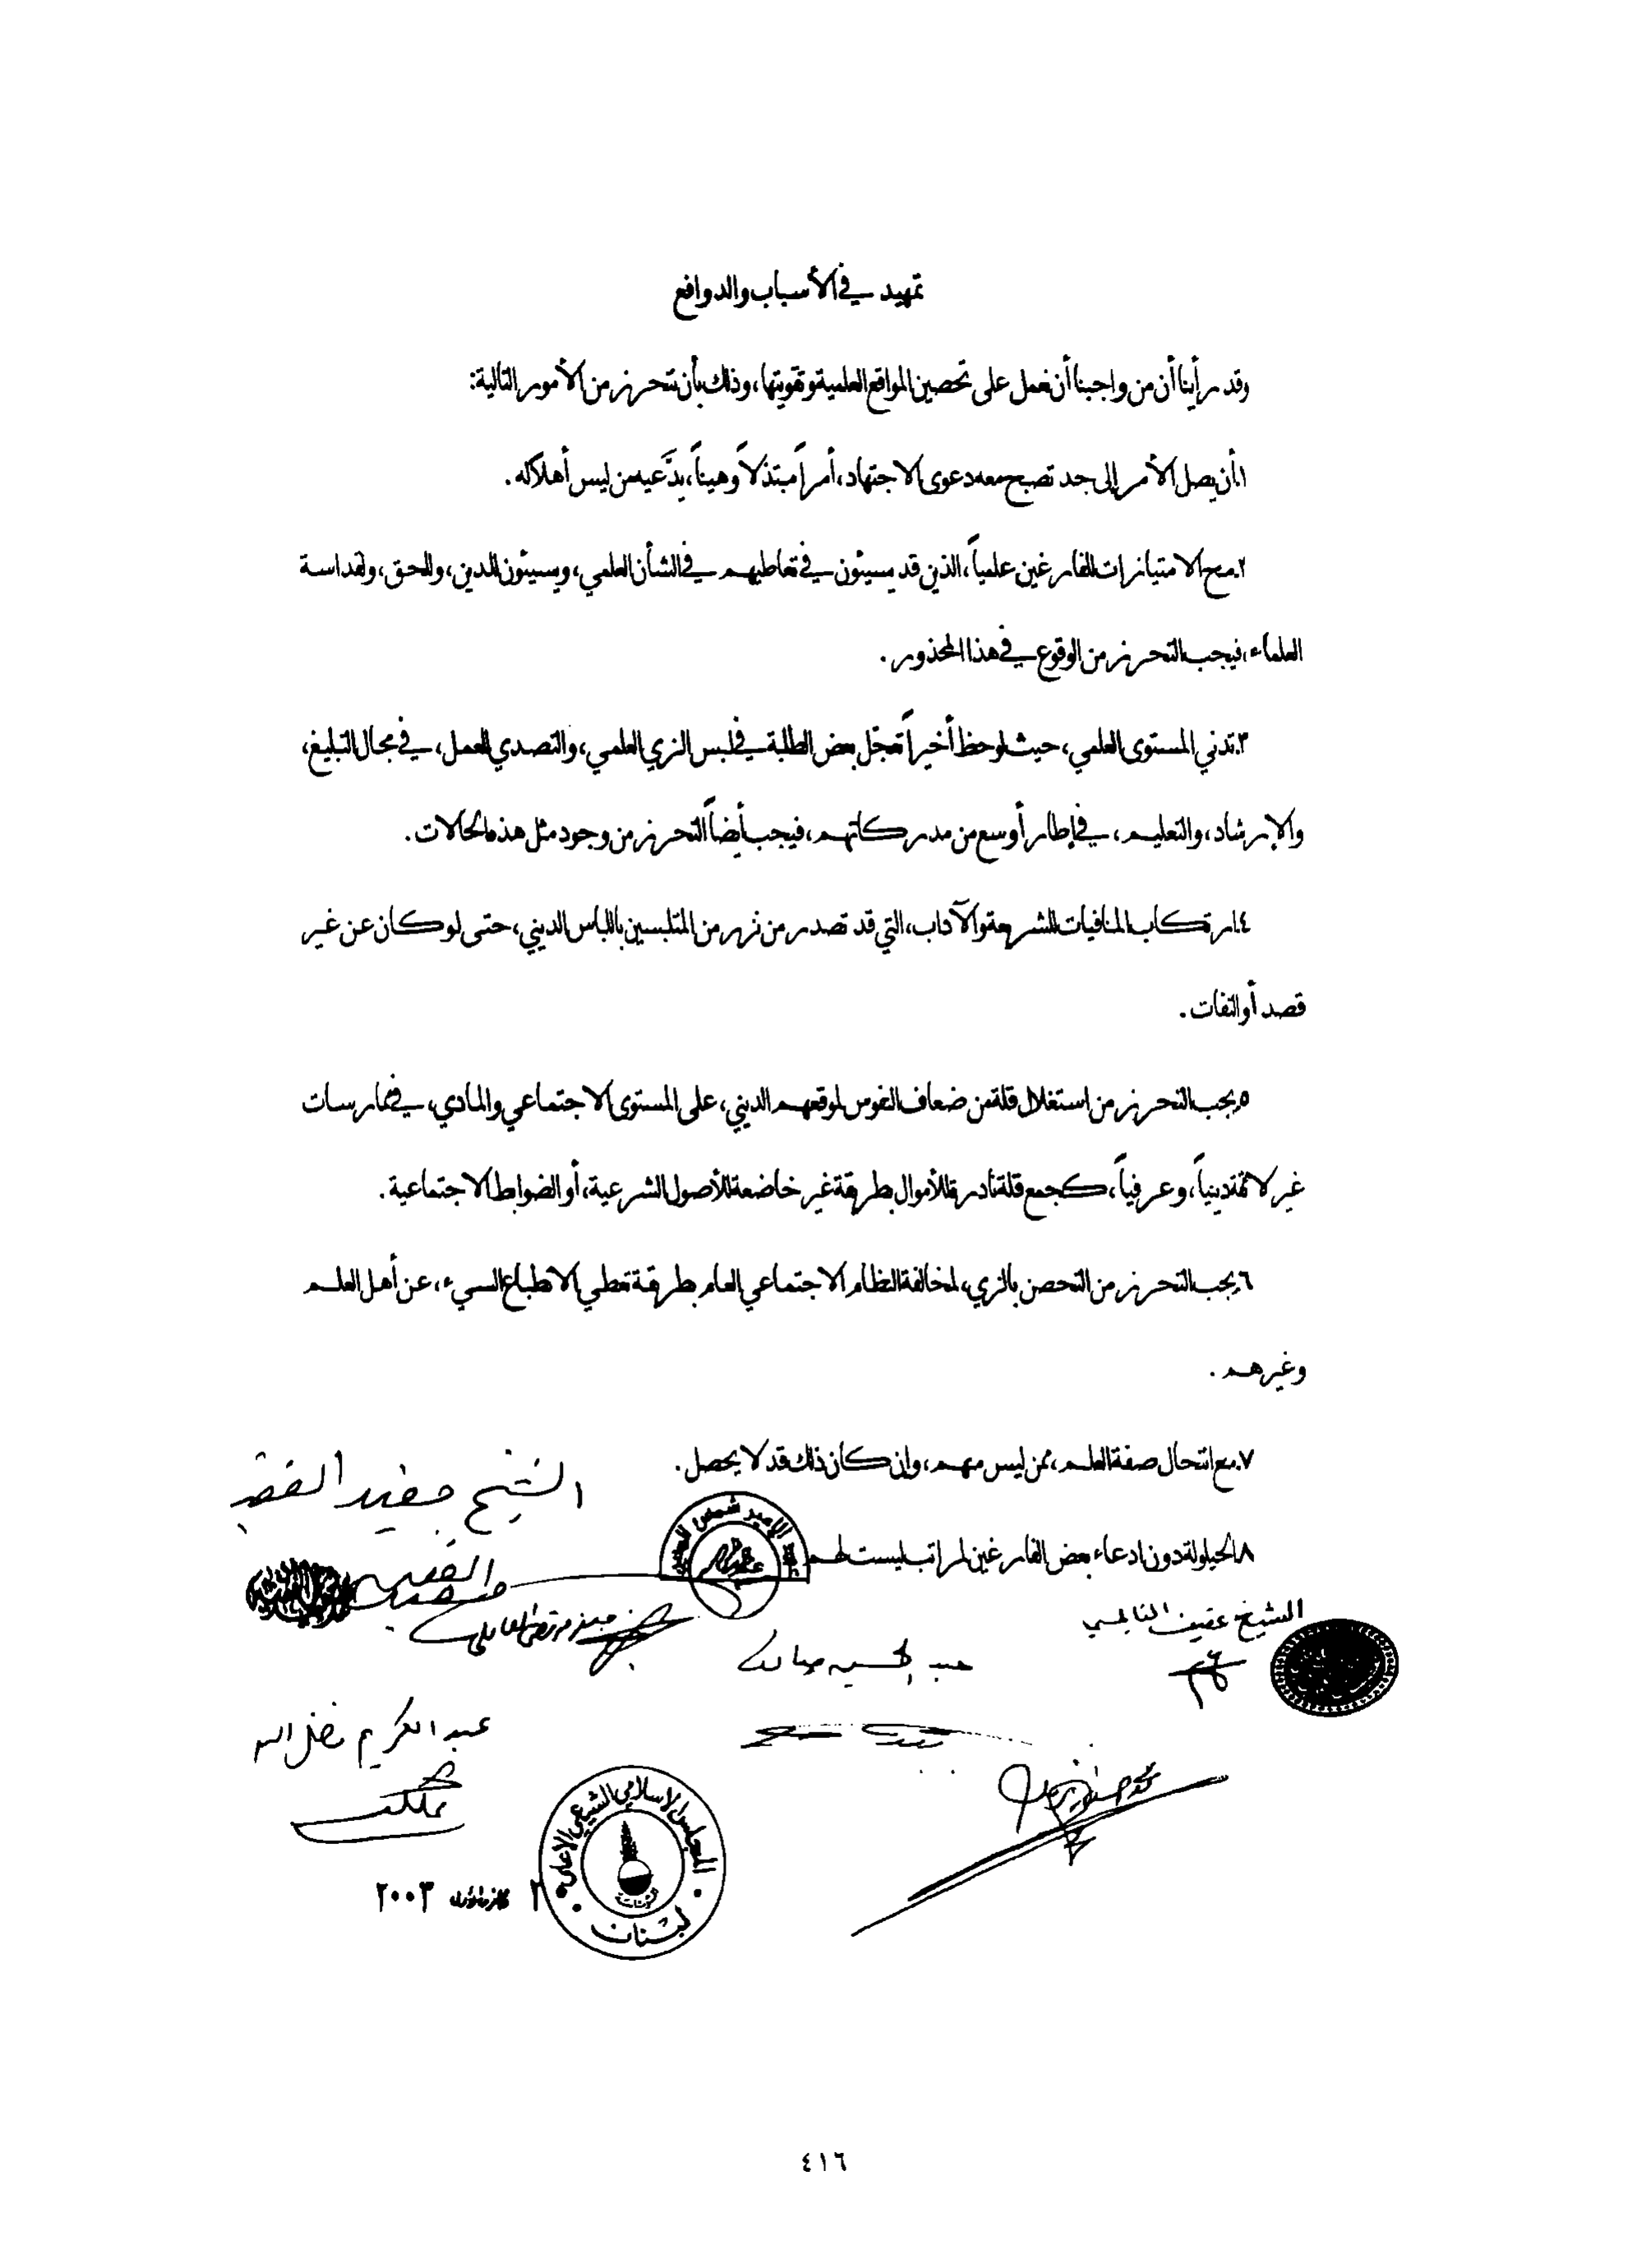 تمهيد في الأسباب والدوافع
وقد رأينا أن من واجبنا أن نعمل على تحصين المواقع العلمية وتقويتها، وذلك بأن نتحرز من الأمور التالية:
١. أن يصل الأمر إلى حد تصبح معه دعوى الاجتهاد، أمراً مبتذلاً وهيناً، يدَّعيه من ليس أهلاً له.
٢. منح الامتيازات للفارغين علمياً، الذين قد يسيئون في تعاطيهم في الشأن العلمي، ويسيئون للدين، وللحق، ولقداسة
العلماء، فيجب التحرز من الوقوع في هذا المحذور.
٣. تدني المستوى العلمي، حيث لوحظ أخيراً تعجّل بعض الطلبة في لبس الزي العلمي، والتصدي للعمل، في مجال التبليغ،
والإرشاد، والتعليم، في إطار أوسع من مدركاتهم، فيجب أيضاً التحرز من وجود مثل هذه الحالات.
٤. ارتكاب المنافيات للشريعة والآداب، التي قد تصدر من نزر من المتلبسين باللباس الديني، حتى لو كان عن غير
قصد أو التفات.
٥. يجب التحرز من استغلال قلة من ضعاف النفوس لموقعهم الديني، على المستوى الاجتماعي والمادي، في ممارسات
غير لائقة دينياً، وعرفياً، كجمع قلة نادرة للأموال بطريقة غير خاضعة للأصول الشرعية، أو الضوابط الاجتماعية.
٦. يجب التحرز من التحصن بالزي، لمخالفة النظام الاجتماعي العام بطريقة تعطي الانطباع السيء، عن أهل العلم
وغيرهم.
٧. منع انتحال صفة العلم، ممن ليس منهم، وإن كان ذلك قد لا يحصل.
٨. الحيلولة دون ادعاء بعض الفارغين لمراتب ليست لهم
الشيخ مفيد الفقيه
الأمير شمس
مفيد الفقيه
جعفر مرتضى العاملي
الشيخ عفيف النابلسي
عبد الحسين صادق
عبد الكريم فضل الله
المجلس الاسلامي الشيعي الأعلى
لبنان
٢ كانون الأول ٢٠٠٣
٤١٦